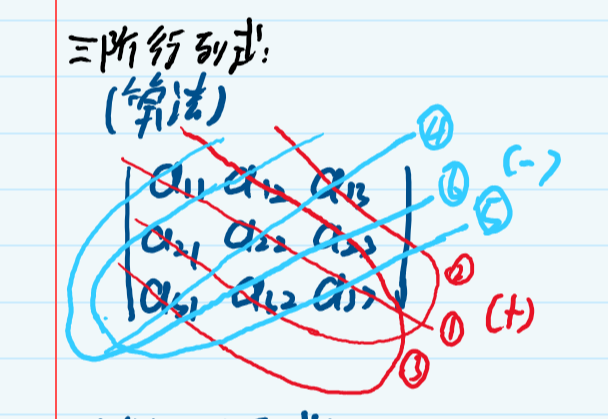 三阶行列式:
(算法)
④
a11 a12 a13 ⑥ (-)
⑤
a21 a22 a23
②
a31 a32 a33 ① (+)
③